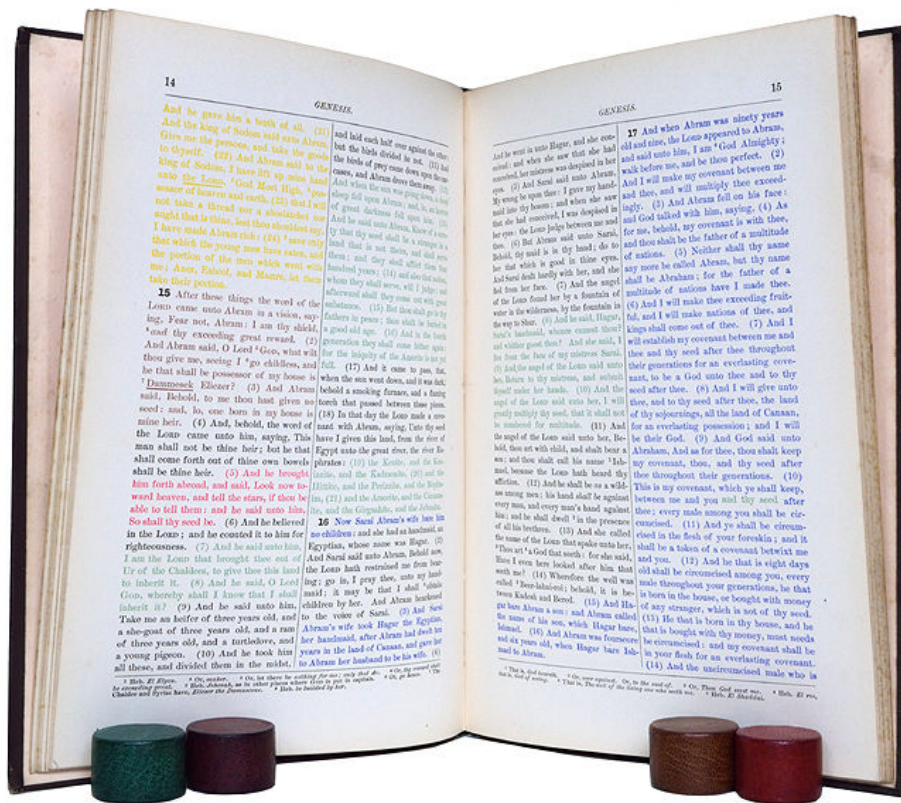 14
GENESIS.
And he gave him a tenth of all. (21)
And the king of Sodom said unto Abram,
Give me the persons, and take the goods
to thyself. (22) And Abram said to the
king of Sodom, I have lift up mine hand
unto the Lord, God Most High, pos-
sessor of heaven and earth, (23) that I will
not take a thread nor a shoelatchet nor
aught that is thine, lest thou shouldest say,
I have made Abram rich: (24) save only
that which the young men have eaten, and
the portion of the men which went with
me; Aner, Eshcol, and Mamre, let them
take their portion.
15 After these things the word of the
LORD came unto Abram in a vision, say-
ing, Fear not, Abram: I am thy shield,
and thy exceeding great reward. (2)
And Abram said, O Lord GOD, what wilt
thou give me, seeing I go childless, and
he that shall be possessor of my house is
Dammesek Eliezer? (3) And Abram
said, Behold, to me thou hast given no
seed: and, lo, one born in my house is
mine heir. (4) And, behold, the word of
the LORD came unto him, saying, This
man shall not be thine heir; but he that
shall come forth out of thine own bowels
shall be thine heir. (5) And he brought
him forth abroad, and said, Look now to-
ward heaven, and tell the stars, if thou be
able to tell them: and he said unto him,
So shall thy seed be. (6) And he believed
in the LORD; and he counted it to him for
righteousness. (7) And he said unto him,
I am the LORD that brought thee out of
Ur of the Chaldees, to give thee this land
to inherit it. (8) And he said, O Lord
GOD, whereby shall I know that I shall
inherit it? (9) And he said unto him,
Take me an heifer of three years old, and
a she-goat of three years old, and a ram
of three years old, and a turtledove, and
a young pigeon. (10) And he took him
all these, and divided them in the midst,
and laid each half over against the other:
but the birds divided he not. (11) And
the birds of prey came down upon the car-
cases, and Abram drove them away. (12)
And when the sun was going down, a deep
sleep fell upon Abram; and, lo, an horror
of great darkness fell upon him. (13)
And he said unto Abram, Know of a sure-
ty that thy seed shall be a stranger in a
land that is not theirs, and shall serve
them; and they shall afflict them four
hundred years; (14) and also that nation,
whom they shall serve, will I judge: and
afterward shall they come out with great
substance. (15) But thou shalt go to thy
fathers in peace; thou shalt be buried in
a good old age. (16) And in the fourth
generation they shall come hither again:
for the iniquity of the Amorite is not yet
full. (17) And it came to pass, that,
when the sun went down, and it was dark,
behold a smoking furnace, and a flaming
torch that passed between these pieces.
(18) In that day the LORD made a cove-
nant with Abram, saying, Unto thy seed
have I given this land, from the river of
Egypt unto the great river, the river Eu-
phrates: (19) the Kenite, and the Ken-
izzite, and the Kadmonite, (20) and the
Hittite, and the Perizzite, and the Repha-
im, (21) and the Amorite, and the Canaan-
ite, and the Girgashite, and the Jebusite.
16 Now Sarai Abram's wife bare him
no children: and she had an handmaid, an
Egyptian, whose name was Hagar. (2)
And Sarai said unto Abram, Behold now,
the LORD hath restrained me from bear-
ing; go in, I pray thee, unto my hand-
maid; it may be that I shall obtain
children by her. And Abram hearkened
to the voice of Sarai. (3) And Sarai
Abram's wife took Hagar the Egyptian,
her handmaid, after Abram had dwelt ten
years in the land of Canaan, and gave her
to Abram her husband to be his wife. (4)
15
GENESIS.
And he went in unto Hagar, and she con-
ceived: and when she saw that she had
conceived, her mistress was despised in her
eyes. (5) And Sarai said unto Abram,
My wrong be upon thee: I gave my hand-
maid into thy bosom; and when she saw
that she had conceived, I was despised in
her eyes: the LORD judge between me and
thee. (6) But Abram said unto Sarai,
Behold, thy maid is in thy hand; do to
her that which is good in thine eyes.
And Sarai dealt hardly with her, and she
fled from her face. (7) And the angel
of the LORD found her by a fountain of
water in the wilderness, by the fountain in
the way to Shur. (8) And he said, Hagar,
Sarai's handmaid, whence camest thou?
and whither goest thou? And she said, I
flee from the face of my mistress Sarai.
(9) And the angel of the LORD said unto
her, Return to thy mistress, and submit
thyself under her hands. (10) And the
angel of the LORD said unto her, I will
greatly multiply thy seed, that it shall not
be numbered for multitude. (11) And
the angel of the LORD said unto her, Be-
hold, thou art with child, and shalt bear a
son; and thou shalt call his name Ish-
mael, because the LORD hath heard thy
affliction. (12) And he shall be as a wild-
ass among men; his hand shall be against
every man, and every man's hand against
him; and he shall dwell in the presence
of all his brethren. (13) And she called
the name of the LORD that spake unto her,
Thou art a God that seeth: for she said,
Have I even here looked after him that
seeth me? (14) Wherefore the well was
called Beer-lahai-roi; behold, it is be-
tween Kadesh and Bered. (15) And Ha-
gar bare Abram a son: and Abram called
the name of his son, which Hagar bare,
Ishmael. (16) And Abram was fourscore
and six years old, when Hagar bare Ish-
mael to Abram.
17 And when Abram was ninety years
old and nine, the LORD appeared to Abram,
and said unto him, I am God Almighty;
walk before me, and be thou perfect. (2)
And I will make my covenant between me
and thee, and will multiply thee exceed-
ingly. (3) And Abram fell on his face:
and God talked with him, saying, (4) As
for me, behold, my covenant is with thee,
and thou shalt be the father of a multitude
of nations. (5) Neither shall thy name
any more be called Abram, but thy name
shall be Abraham; for the father of a
multitude of nations have I made thee.
(6) And I will make thee exceeding fruit-
ful, and I will make nations of thee, and
kings shall come out of thee. (7) And I
will establish my covenant between me and
thee and thy seed after thee throughout
their generations for an everlasting cove-
nant, to be a God unto thee and to thy
seed after thee. (8) And I will give unto
thee, and to thy seed after thee, the land
of thy sojournings, all the land of Canaan,
for an everlasting possession; and I will
be their God. (9) And God said unto
Abraham, And as for thee, thou shalt keep
my covenant, thou, and thy seed after
thee throughout their generations. (10)
This is my covenant, which ye shall keep,
between me and you and thy seed after
thee; every male among you shall be cir-
cumcised. (11) And ye shall be circum-
cised in the flesh of your foreskin; and it
shall be a token of a covenant betwixt me
and you. (12) And he that is eight days
old shall be circumcised among you, every
male throughout your generations, he that
is born in the house, or bought with money
of any stranger, which is not of thy seed.
(13) He that is born in thy house, and he
that is bought with thy money, must needs
be circumcised: and my covenant shall be
in your flesh for an everlasting covenant.
(14) And the uncircumcised male who is